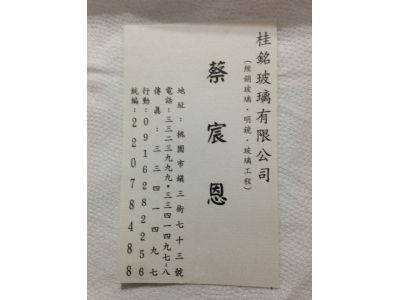 桂銘玻璃有限公司
(經銷玻璃·明鏡·玻璃工程)
蔡宸恩
地址:桃園市鎮三街七十三號
電話:三三二三九九九•三三四一四九七~八
傳真:三三四一四九七
行動:0916282256
統編:22078488